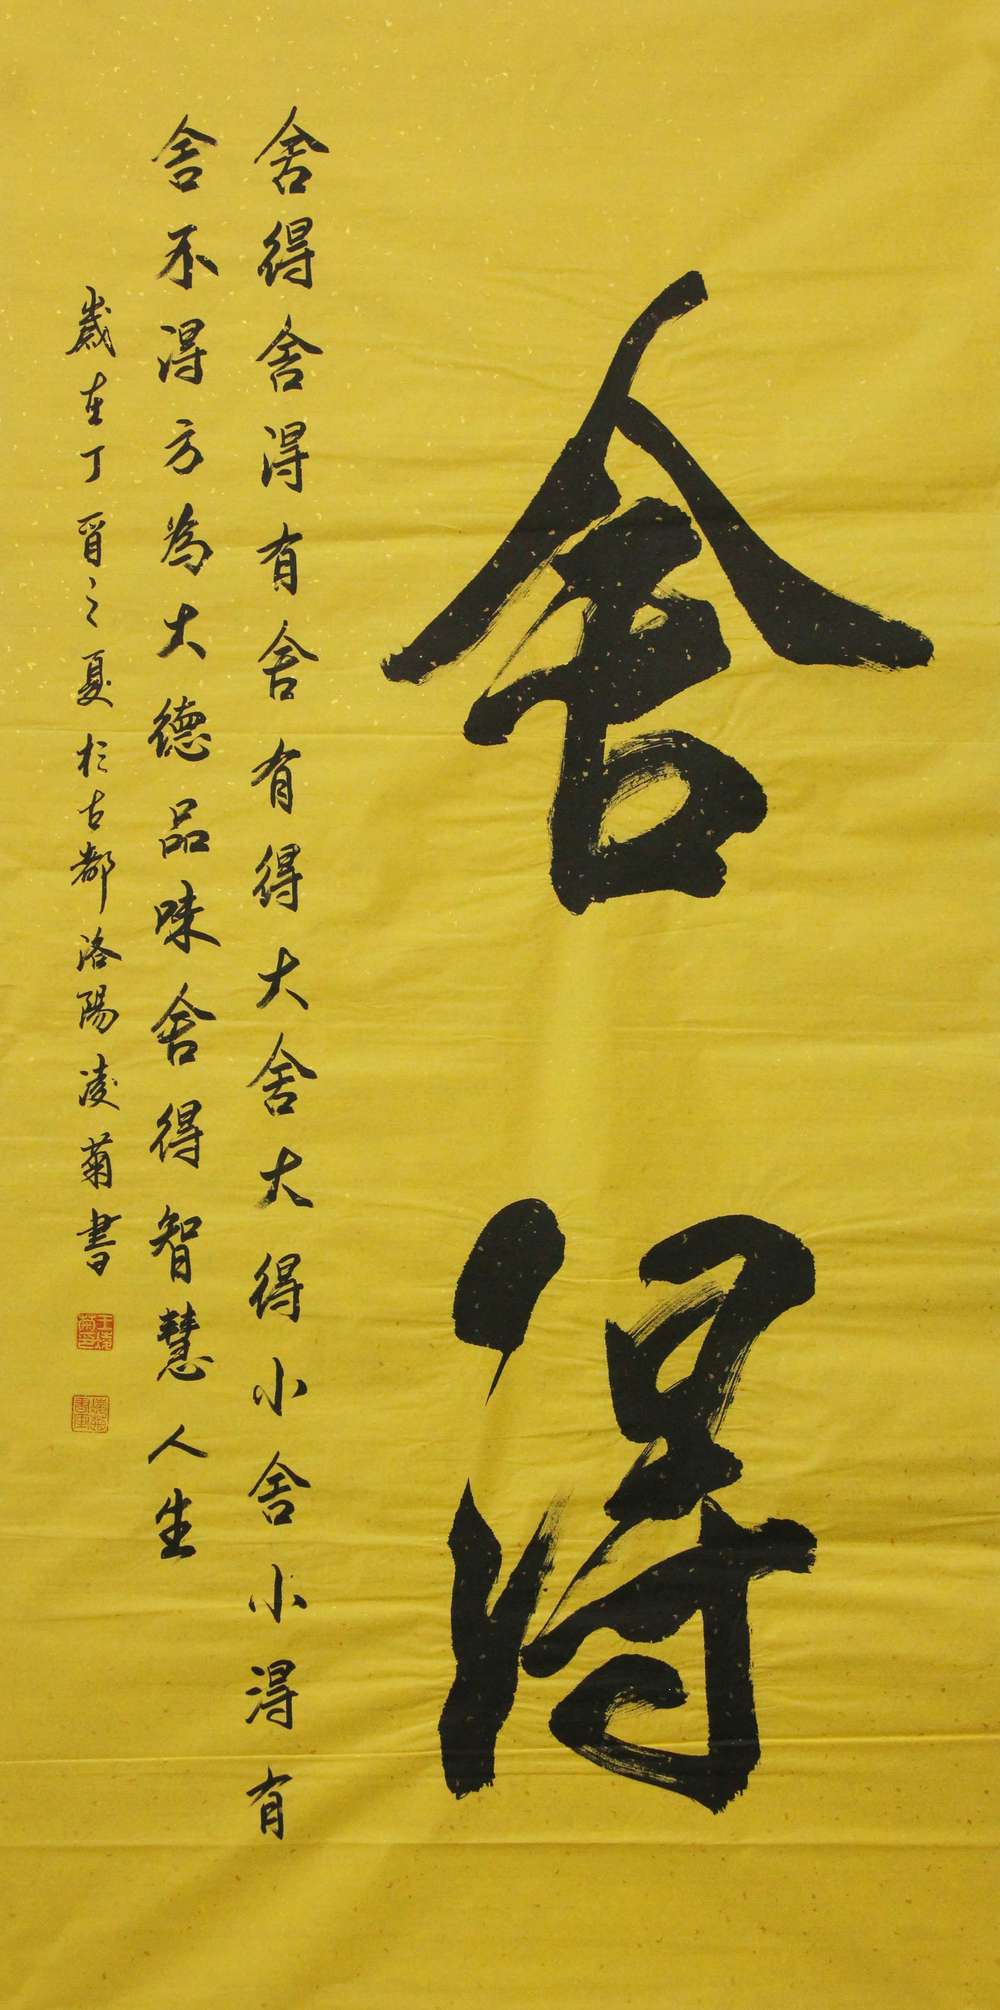 舍得
舍得舍得有舍有得大舍大得小舍小得有
舍不得方為大德品味舍得智慧人生
歲在丁酉之夏於古都洛陽凌菊書
王凌菊印